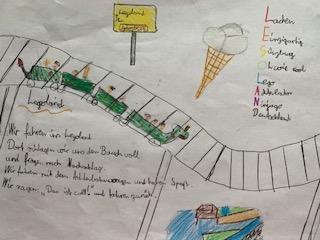 Legoland
Lachen
Einzigartig
Günzburg
Oh wie cool
Lego
Achterbahn
Ninjago
Deutschland
Legoland
Wir fahren ins Legoland.
Dort schlagen wir uns den Bauch voll
und fragen nach Nachschlag.
Wir fahren mit dem Achterbahnwagen und haben Spaß.
Wir sagen: „Das ist toll!" und fahren zurück.